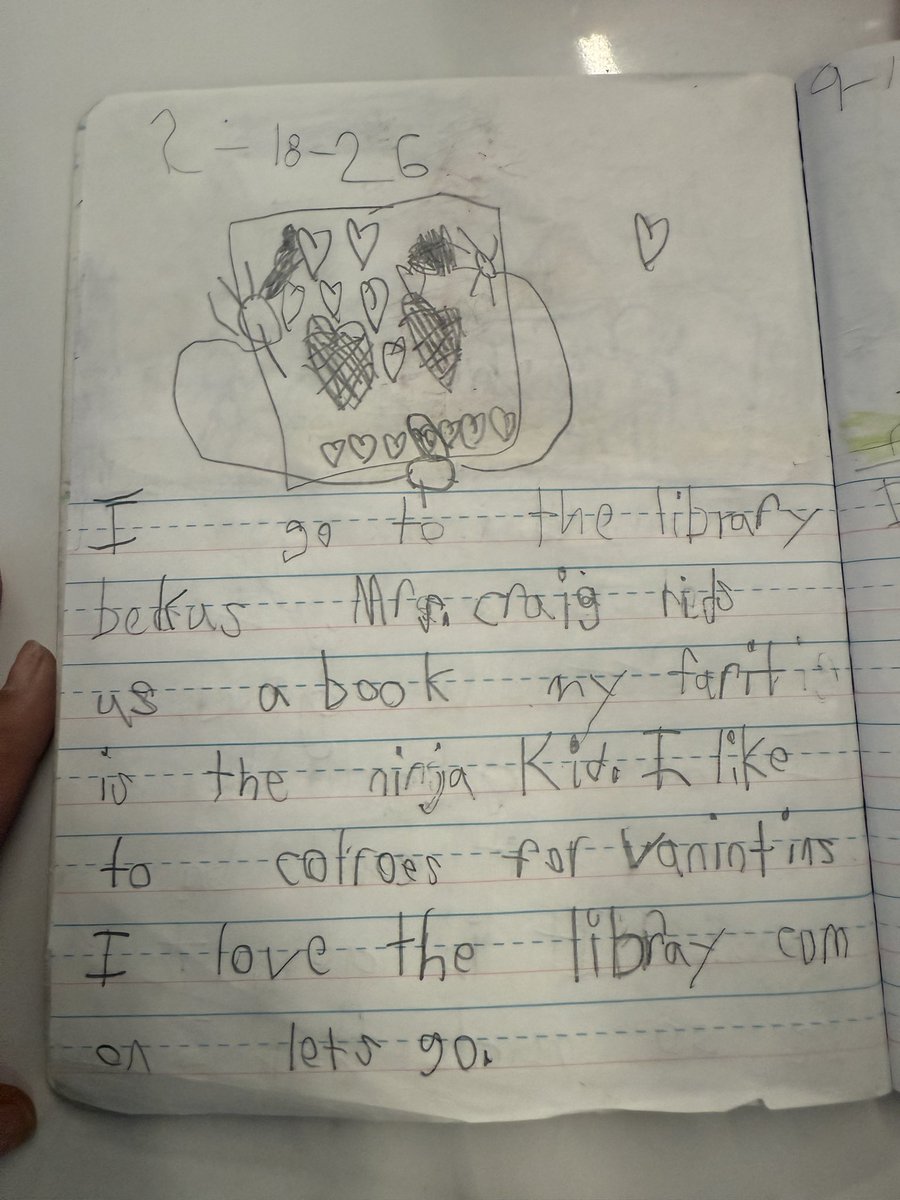 2-18-26
9-1
I go to the library
bekus Mrs. craig rids
us a book my farit
is the ninja Kid. I like
to colroes for vanintins
I love the libray com
on lets go.
I